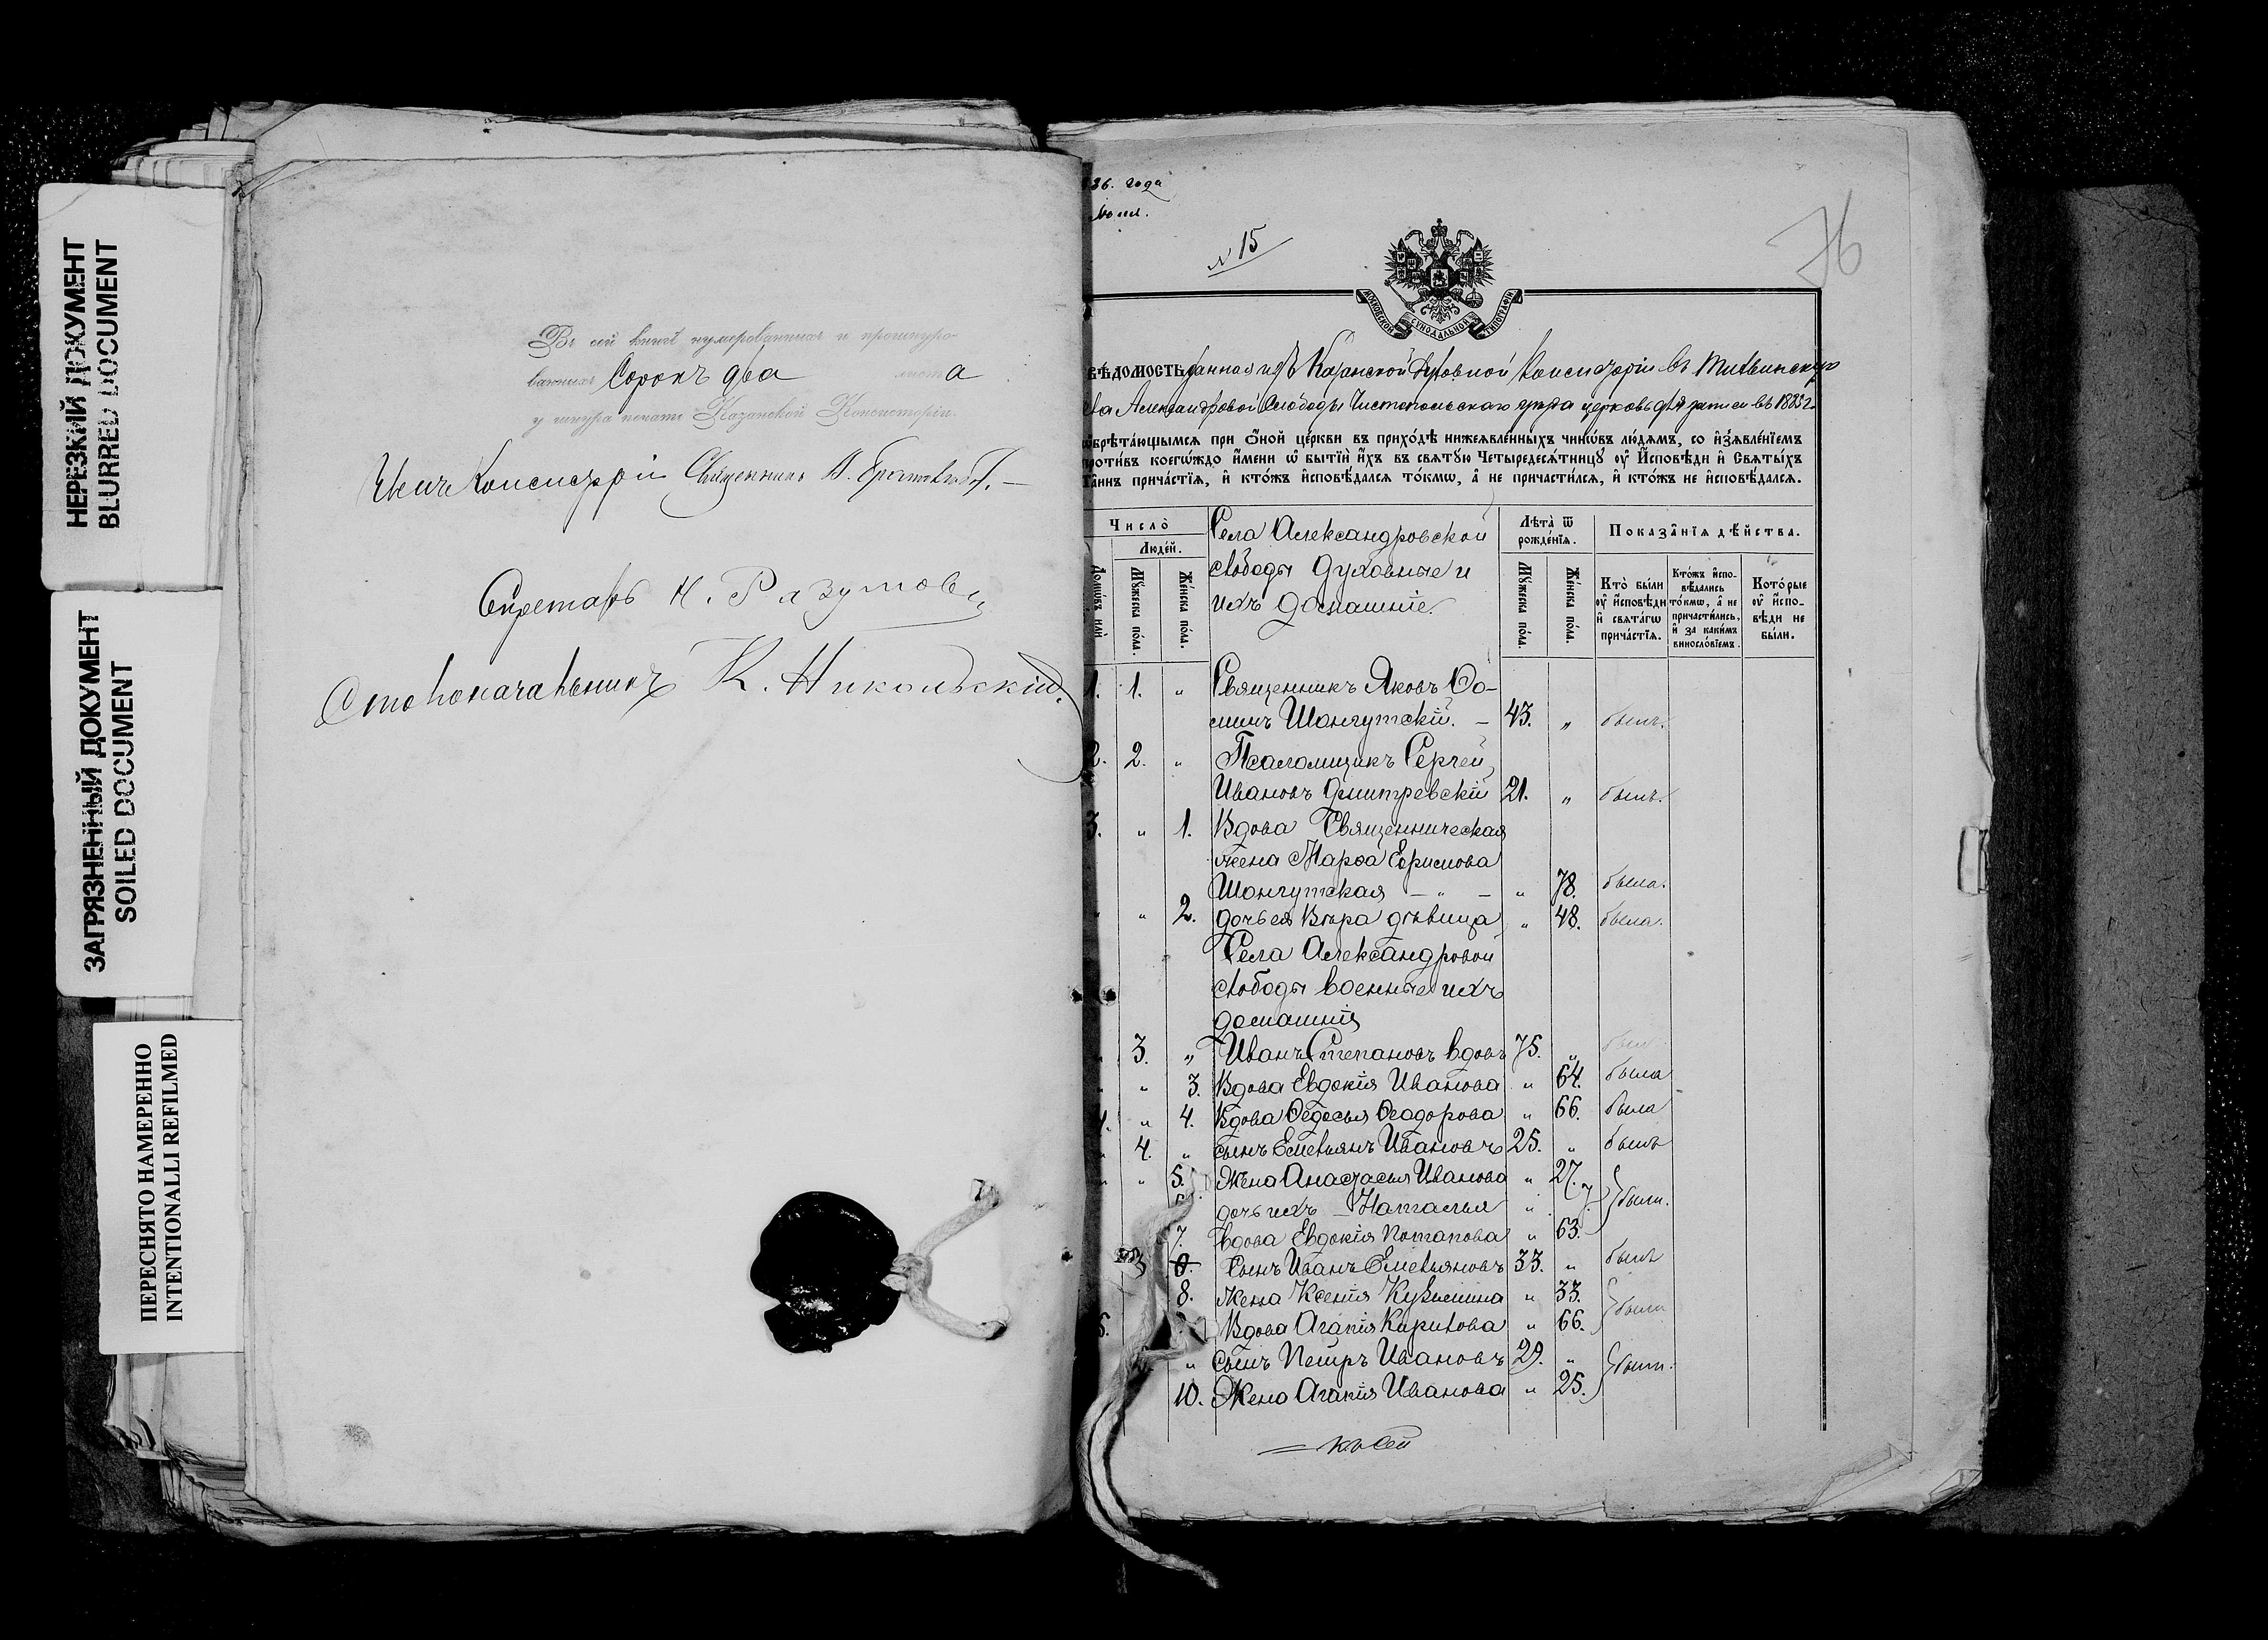 НЕРЕЗКИЙ ДОКУМЕНТ
BLURRED DOCUMENT
ЗАГРЯЗНЕННЫЙ ДОКУМЕНТ
SOILED DOCUMENT
ПЕРЕСНЯТО НАМЕРЕННО
INTENTIONALLI REFILMED
Въ сей книгѣ нумерованныхъ и прошнуро-
ванныхъ Сорокъ два листа
у шнура печать Казанской Консисторіи.
Членъ Консисторіи Священникъ
Секретарь Н. Разумовъ
Столоначальникъ К. Никольскій.
36. года
№ 15
76
МОСКОВСКОЙ СУНОДАЛЬНОЙ ТИПОГРАФІИ
ВѢДОМОСТЬ данная изъ Казанской Духовной Консисторіи въ
Александровой Слободы Чистопольскаго уѣзда церковь для записи въ 1885 г.
ѡбрѣта́ющымсѧ при Ѻ҆́ной це́ркви въ прихо́дѣ нижеѧвле́нныхъ чинѡ́въ лю́демъ, со и҆з̾ѧвле́нїемъ
проти́въ коегѡ́ждо и҆́мени ѡ҆ бытїѝ и҆́хъ въ свѧту́ю Четыредесѧ́тницꙋ ᲂу҆ И҆́сповѣди и҆ Свѧты́хъ
Та̑инъ прича́стїѧ, и҆ кто́жъ и҆сповѣ́далсѧ то́кмѡ, а҆ не причасти́лсѧ, и҆ кто́жъ не и҆сповѣ́далсѧ.
Число̀
Люде́й.
Мꙋ́жеска по́ла.
Же́нска по́ла.
Села Александровской
слободы Духовные и
ихъ домашніе.
Лѣта̀ ѿ рожде́нїѧ.
Мꙋ́жеска по́ла.
Же́нска по́ла.
Показа̑нїѧ дѣ́йства.
Кто̀ бы́ли ᲂу҆ и҆́сповѣди и҆ свѧта́гѡ прича́стїѧ.
Кто́жъ и҆спо-вѣ́дались то́кмѡ, а҆ не причасти́лись, и҆ за каки́мъ винослові́емъ.
Кото́рые ᲂу҆ и҆́спо-вѣди не бы́ли.
1. 1. „ Священникъ Яковъ Ѳо-
минъ Шонгутскій. – 43. „ былъ.
2. 2. „ Псаломщикъ Сергей
Ивановъ Дмитревскій 21. „ былъ.
3. „ 1. Вдова Священническая
жена Марѳа Ефимова
Шонгутская – „ – „ 78. была.
„ „ 2. дочь ея Вѣра дѣвица „ 48. была.
Села Александровой
слободы военные ихъ
домашнія
„ 3. „ Иванъ Степановъ вдовъ 75. „ былъ
„ „ 3. Вдова Евдокія Иванова „ 64. была
4. „ 4. Вдова Ѳедосья Ѳеодорова „ 66. была
„ 4. „ сынъ Емельянъ Ивановъ 25. „ былъ
„ „ 5. Жена Анастасья Иванова „ 27.
дочь ихъ – Наталья „ 7. были.
7. Вдова Евдокія Потапова „ 63.
Сынъ Иванъ Емельяновъ 33. „ былъ
8. Жена Ксенія Кузьмина „ 33. были
Вдова Агапія Кирилова „ 66.
„ сынъ Петръ Ивановъ 29. „ были.
10. Жена Агапія Иванова „ 25.
къ сей